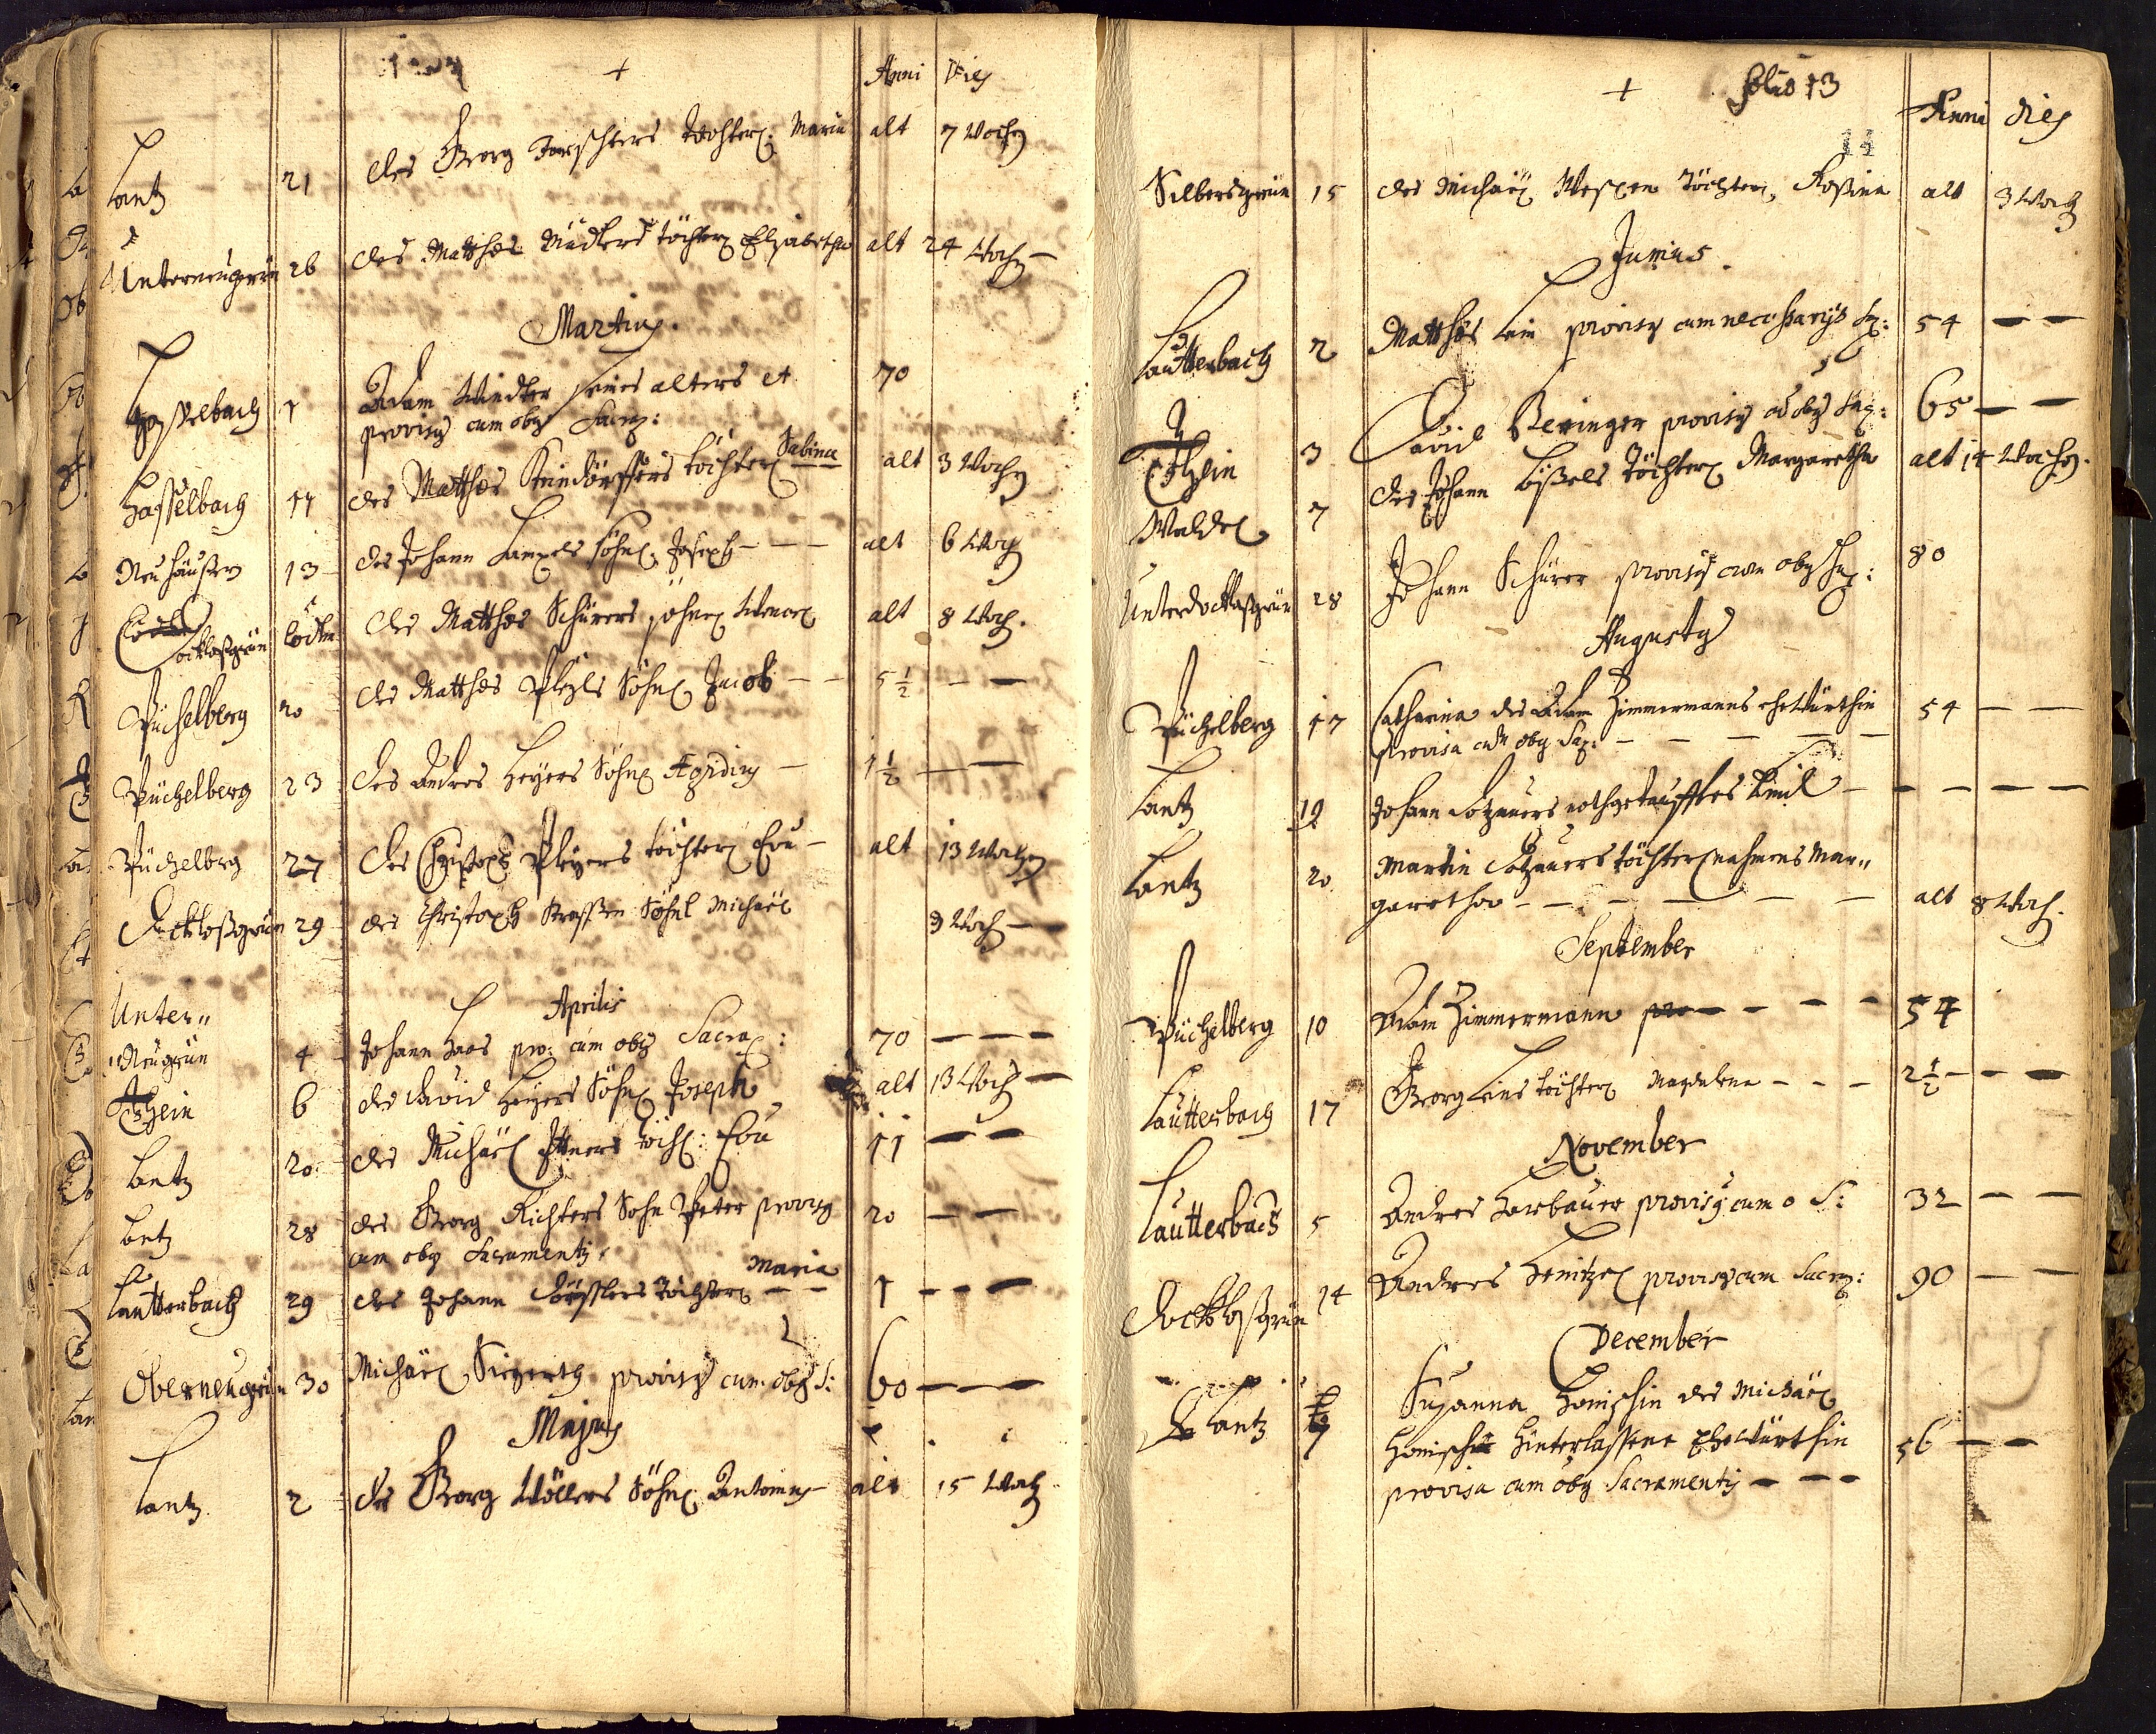 + Anni Dies
Lantz 21 des Georg Forschters tochterl: Maria alt 7 Wochen
Unterneugrün 26 des Matthes Nudlers töchterl Elisabetha alt 24 Wochen —
Martius.
Hasselbach 7 Adam Windler seines alters et 70
provisus cum obus Sacra:
Hasselbach 11 des Matthes Steindörffers töchterl Sabina alt 3 Wochen
Neuhäuser 13 des Johann söhnl. Joseph — — — alt 6 Woch
ockloßgrün eodem des Matthes Schürers söhnl Wencel alt 8 Woch.
Püchelberg 20 des Matthes Söhnl Jacob — — 5 1/2 — —
Püchelberg 23 des Andres Heyers Söhnl Agidius — 1 1/2 — —
Püchelberg 27 des Christoph töchterl Eva — alt 13 Wochen
Dockloßgrün 29 des Christoph Söhnl Michael 9 Woch —
Aprilis
Unter„
„Neugrün 4 Johann Haas pro: cum obus Sacra: 70 — — —
Thein 6 des David Heyers Söhnl Joseph alt 13 Woch —
Lantz 20. des Michael töchl: Eva 11 — —
Lantz 28 des Georg Richters Sohn Peter provisus 20 — —
cum obus Sacramentis.
Lautterbach 29 des Johann töchterl Maria — — 1 — — —
Oberneugrün 30 Michael Siegerth provisus cum obus S: 60 — — —
Majus
Lantz 2 des Georg Söhnl Antonius — alt 15 Woch
+ folio 13
14
Anni dies
Silbersgrün 15 des Michael töchterl Rosina alt 3 Woch
Junius.
Lautterbach 2 Matthes Lein provisus cum necessarijs Sa: 54 — —
Thein 3 David Beringer provisus cu obus Sa: 65 — —
Waldl 7 des Johann töchterl Margaretha alt 14 Wochen.
Unterdockloßgrün 28 Johann Schürer provisus cum obus Sa: 80
Augustus
Püchelberg 17 Catharina des Adam Zimmermanns ehewürthin 54 — —
provisa cum obus Sa: — — — — —
Lantz 19 Johann nothgetaufftes Kind — — — — —
Lantz 20 Martin töchterl nahmens Mar„
garetha — — — — — — alt 8 Woch.
September
Püchelberg 10 Adam Zimmermann pro — — — — 54
Lautterbach 17 Georg Leins töchterl Magdalena — — — 2 1/2 — — —
November
Lautterbach 5 Andres Harbauer provisus cum o S: 32 — —
Dockloßgrün 14 Andres provisus cum Sacra: 90 — —
December
Lantz 7 Susanna Honischin des Michael
Honisch hinterlassene Ehewürthin 56 — —
provisa cum obus Sacramentis — — —